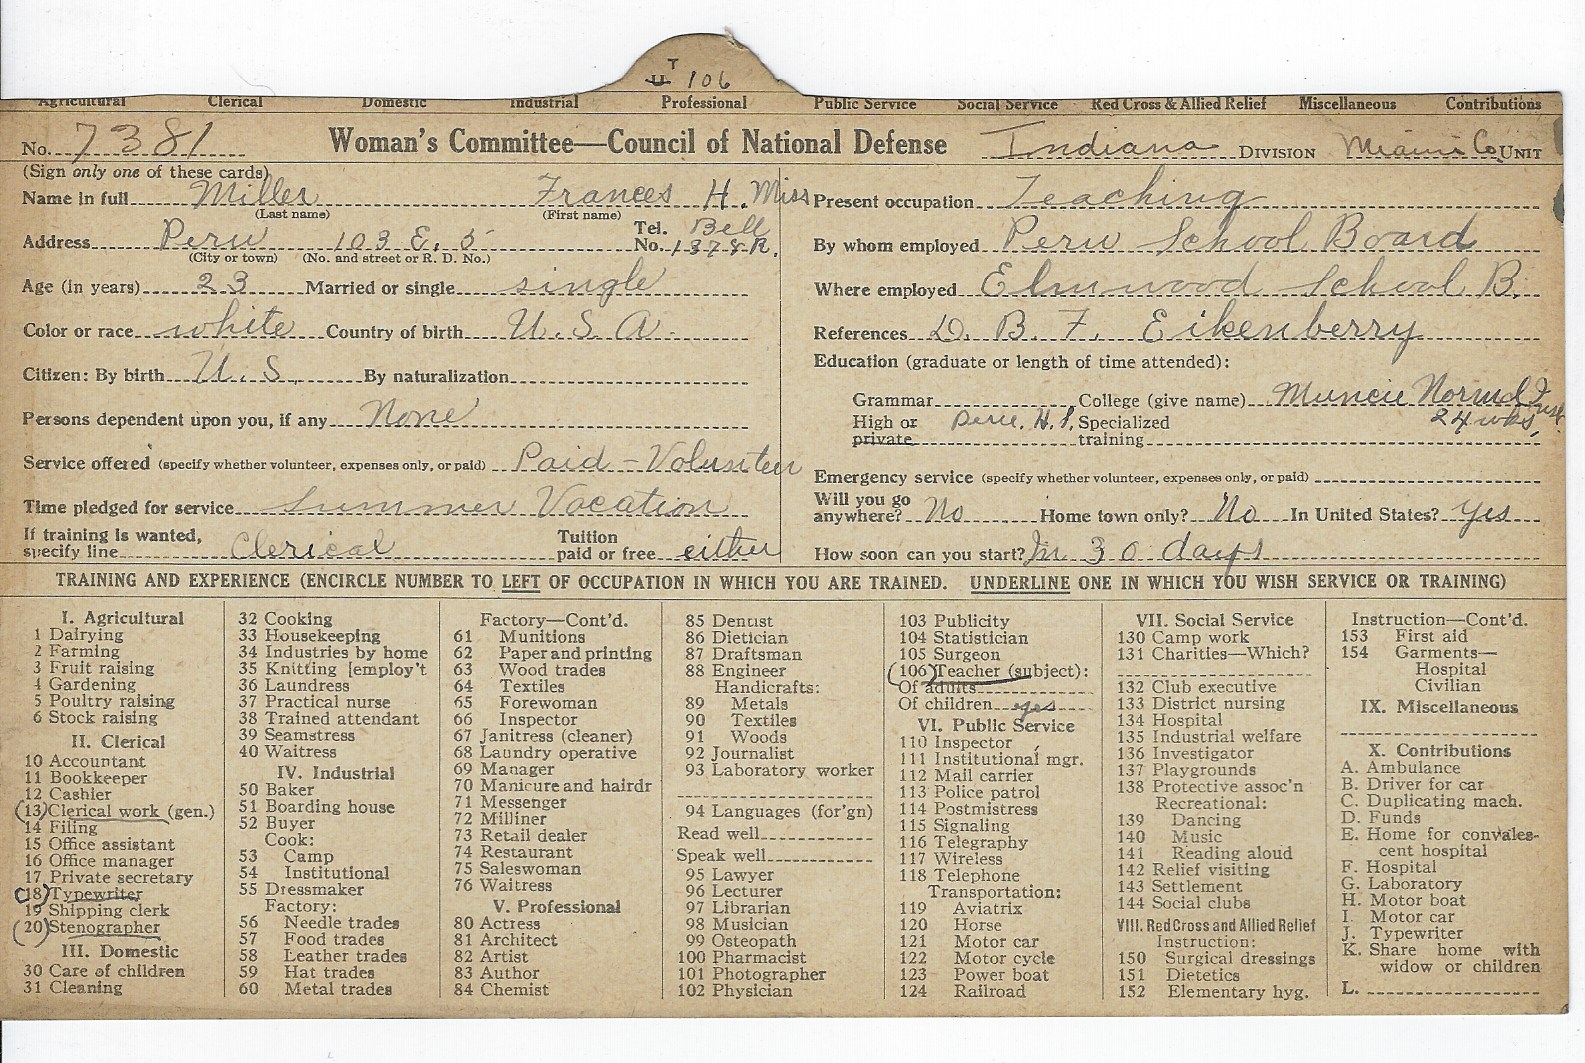 T
U 106
Agricultural Clerical Domestic Industrial Professional Public Service Social Service Red Cross & Allied Relief Miscellaneous Contributions
No. 7381 Woman's Committee—Council of National Defense Indiana DIVISION Miami Co. UNIT
(Sign only one of these cards)
Name in full Miller Frances H. Miss
(Last name) (First name)
Address Peru 103 E. 5 Tel. No. Bell 1378R.
(City or town) (No. and street or R. D. No.)
Age (in years) 23 Married or single single
Color or race white Country of birth U. S. A.
Citizen: By birth U. S. By naturalization
Persons dependent upon you, if any None
Service offered (specify whether volunteer, expenses only, or paid) Paid - Volunteer
Time pledged for service Summer Vacation
If training is wanted, specify line Clerical Tuition paid or free either
Present occupation Teaching
By whom employed Peru School Board
Where employed Elmwood School B.
References D. B. F. Eikenberry
Education (graduate or length of time attended):
Grammar College (give name) Muncie Normal Inst
24 wks.
High or private Peru. H. S. Specialized training
Emergency service (specify whether volunteer, expenses only, or paid)
Will you go anywhere? No Home town only? No In United States? Yes
How soon can you start? In 30 days
TRAINING AND EXPERIENCE (ENCIRCLE NUMBER TO LEFT OF OCCUPATION IN WHICH YOU ARE TRAINED. UNDERLINE ONE IN WHICH YOU WISH SERVICE OR TRAINING)
I. Agricultural
1 Dairying
2 Farming
3 Fruit raising
4 Gardening
5 Poultry raising
6 Stock raising
II. Clerical
10 Accountant
11 Bookkeeper
12 Cashier
(13) Clerical work (gen.)
14 Filing
15 Office assistant
16 Office manager
17 Private secretary
(18) Typewriter
19 Shipping clerk
(20) Stenographer
III. Domestic
30 Care of children
31 Cleaning
32 Cooking
33 Housekeeping
34 Industries by home
35 Knitting [employ't
36 Laundress
37 Practical nurse
38 Trained attendant
39 Seamstress
40 Waitress
IV. Industrial
50 Baker
51 Boarding house
52 Buyer
Cook:
53 Camp
54 Institutional
55 Dressmaker
Factory:
56 Needle trades
57 Food trades
58 Leather trades
59 Hat trades
60 Metal trades
Factory—Cont'd.
61 Munitions
62 Paper and printing
63 Wood trades
64 Textiles
65 Forewoman
66 Inspector
67 Janitress (cleaner)
68 Laundry operative
69 Manager
70 Manicure and hairdr
71 Messenger
72 Milliner
73 Retail dealer
74 Restaurant
75 Saleswoman
76 Waitress
V. Professional
80 Actress
81 Architect
82 Artist
83 Author
84 Chemist
85 Dentist
86 Dietician
87 Draftsman
88 Engineer
Handicrafts:
89 Metals
90 Textiles
91 Woods
92 Journalist
93 Laboratory worker
94 Languages (for'gn)
Read well
Speak well
95 Lawyer
96 Lecturer
97 Librarian
98 Musician
99 Osteopath
100 Pharmacist
101 Photographer
102 Physician
103 Publicity
104 Statistician
105 Surgeon
(106) Teacher (subject):
Of adults
Of children yes
VI. Public Service
110 Inspector
111 Institutional mgr.
112 Mail carrier
113 Police patrol
114 Postmistress
115 Signaling
116 Telegraphy
117 Wireless
118 Telephone
Transportation:
119 Aviatrix
120 Horse
121 Motor car
122 Motor cycle
123 Power boat
124 Railroad
VII. Social Service
130 Camp work
131 Charities—Which?
132 Club executive
133 District nursing
134 Hospital
135 Industrial welfare
136 Investigator
137 Playgrounds
138 Protective assoc'n
Recreational:
139 Dancing
140 Music
141 Reading aloud
142 Relief visiting
143 Settlement
144 Social clubs
VIII. Red Cross and Allied Relief
Instruction:
150 Surgical dressings
151 Dietetics
152 Elementary hyg.
Instruction—Cont'd.
153 First aid
154 Garments—
Hospital
Civilian
IX. Miscellaneous
X. Contributions
A. Ambulance
B. Driver for car
C. Duplicating mach.
D. Funds
E. Home for convales-
cent hospital
F. Hospital
G. Laboratory
H. Motor boat
I. Motor car
J. Typewriter
K. Share home with
widow or children
L.